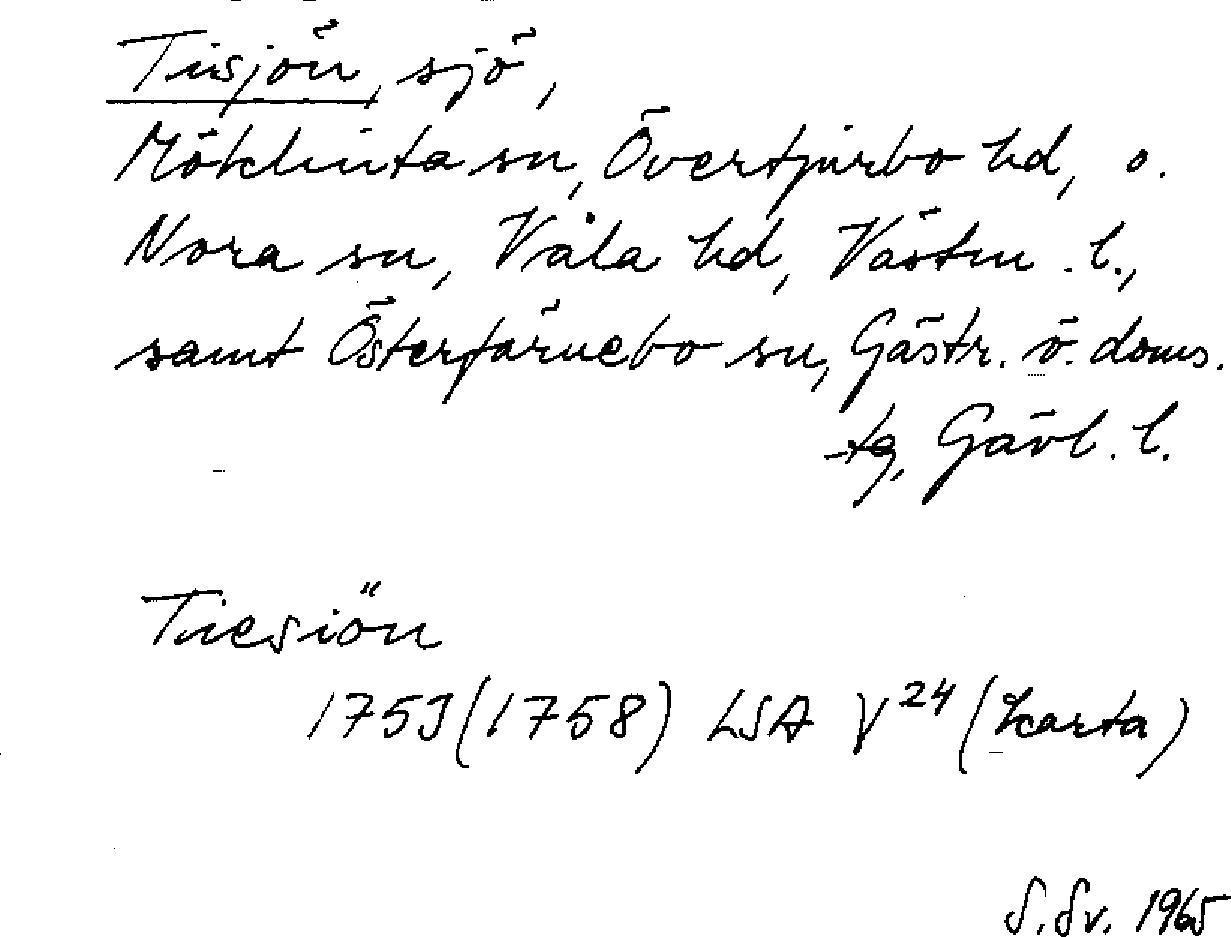 Tisjön, sjö,
Möklinta sn, Övertjurbo hd, o.
Nora sn, Våla hd, Västm. l.,
samt Österfärnebo sn, Gästr. ö. doms.
tg, Gävl. l.
Tiesiön
1753 (1758) LSA V²⁴ (karta)
S. Sv. 1965